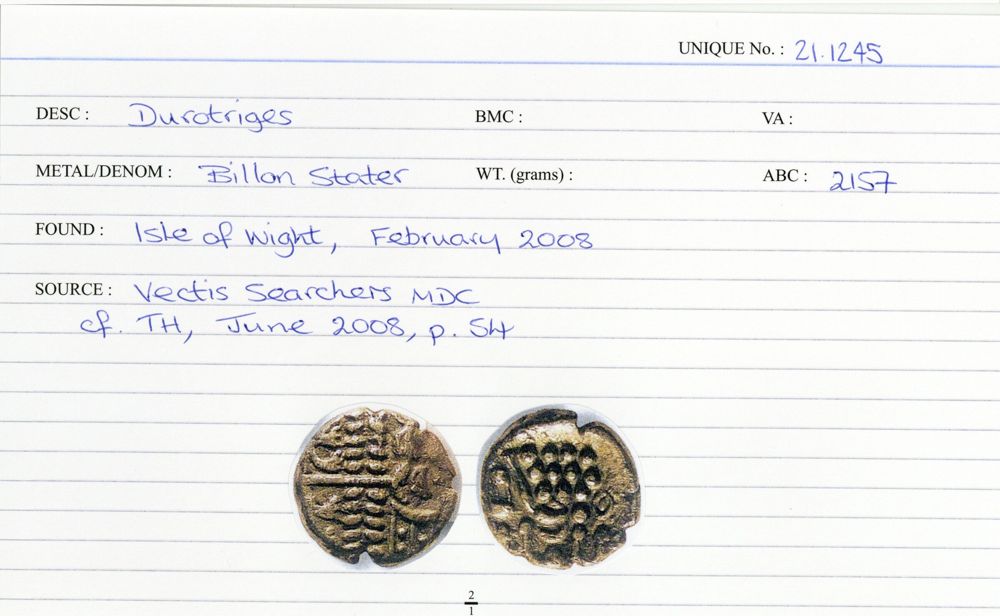 UNIQUE No. : 21.1245
DESC : Durotriges BMC : VA :
METAL/DENOM : Billon Stater WT. (grams) : ABC : 2157
FOUND : Isle of Wight, February 2008
SOURCE : Vectis Searchers MDC
cf. TH, June 2008, p. 54
2
1